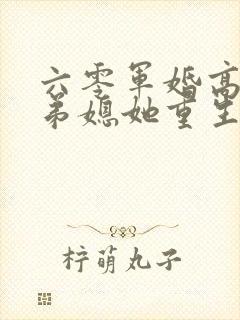 六零军婚高
弟媳她重生
柠萌丸子